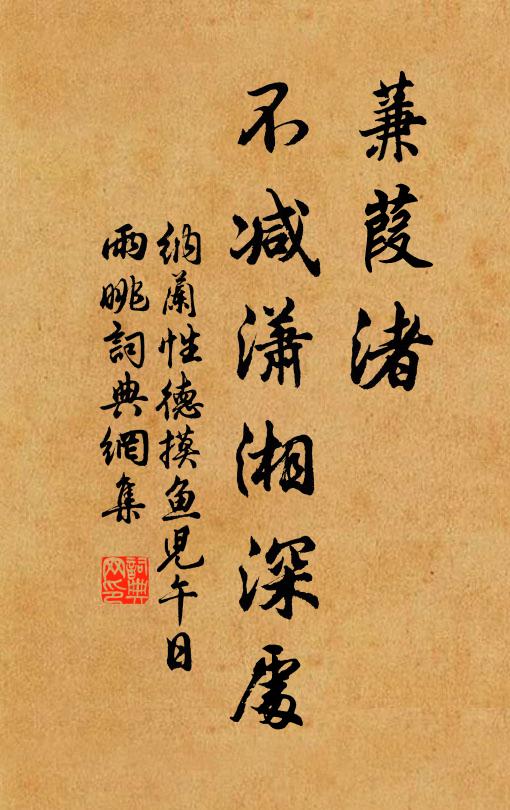 蒹葭渚
不减瀟湘深處
納蘭性德摸魚兒午日
雨眺詞典網集
詞典网印